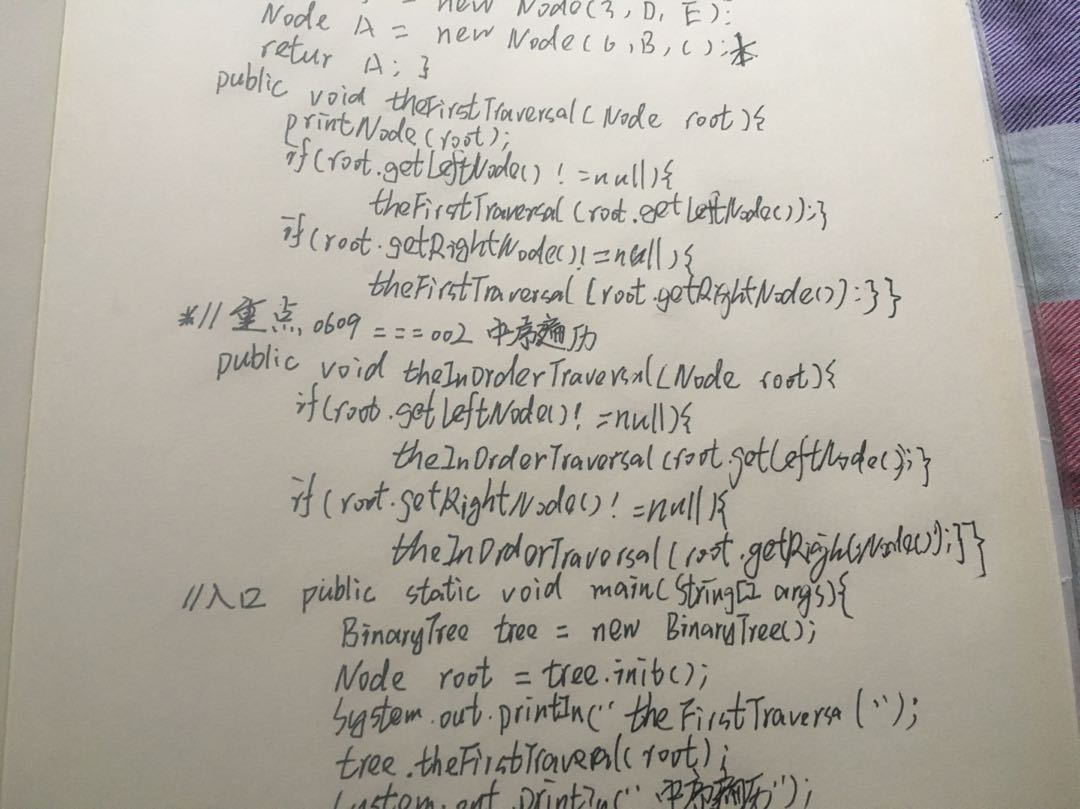 new Node(3, D, E);
Node A = new Node(6, B, C);
retur A; }
public void theFirstTraversal(Node root){
printNode(root);
if(root.getLeftNode() != null){
theFirstTraversal(root.getLeftNode());}
if(root.getRightNode()!=null){
theFirstTraversal(root.getRightNode());}}
*// 重点 0609 ===002 中序遍历
public void theInOrderTraversal(Node root){
if(root.getLeftNode()!=null){
theInOrderTraversal(root.getLeftNode();}
if(root.getRightNode()!=null){
theInOrderTraversal(root.getRightNode();}}
//入口 public static void main(String[] args){
BinaryTree tree = new BinaryTree();
Node root = tree.init();
System.out.println("the FirstTraversal");
tree.theFirstTraversal(root);
System.out.println("中序遍历");